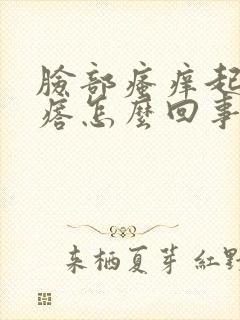 臉部瘙痒起
痞怎麼回事
来栖夏芽 紅野